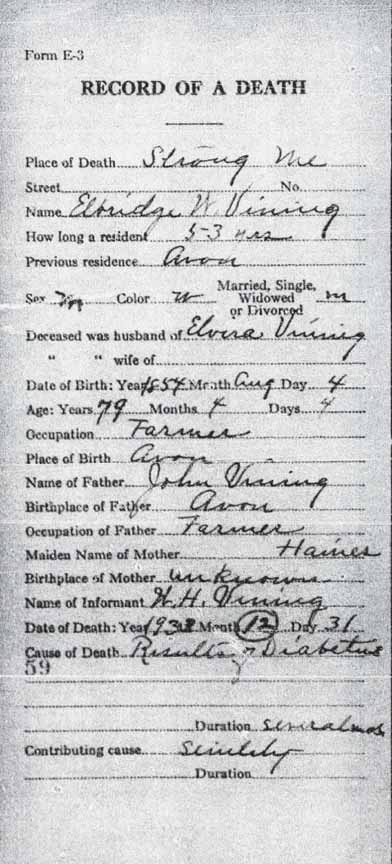 Form E-3
RECORD OF A DEATH
Place of Death Strong Me
Street No.
Name Elbridge W. Vining
How long a resident 53 yrs
Previous residence Avon
Sex M Color W Married, Single, Widowed or Divorced M
Deceased was husband of Elvira Vining
" " wife of
Date of Birth: Year 1854 Month Aug Day 4
Age: Years 79 Months 4 Days 4
Occupation Farmer
Place of Birth Avon
Name of Father John Vining
Birthplace of Father Avon
Occupation of Father Farmer
Maiden Name of Mother Haines
Birthplace of Mother unknown
Name of Informant W. H. Vining
Date of Death: Year Month 12 Day 31
Cause of Death Results of Diabetus
59
Duration several mos
Contributing cause senility
Duration